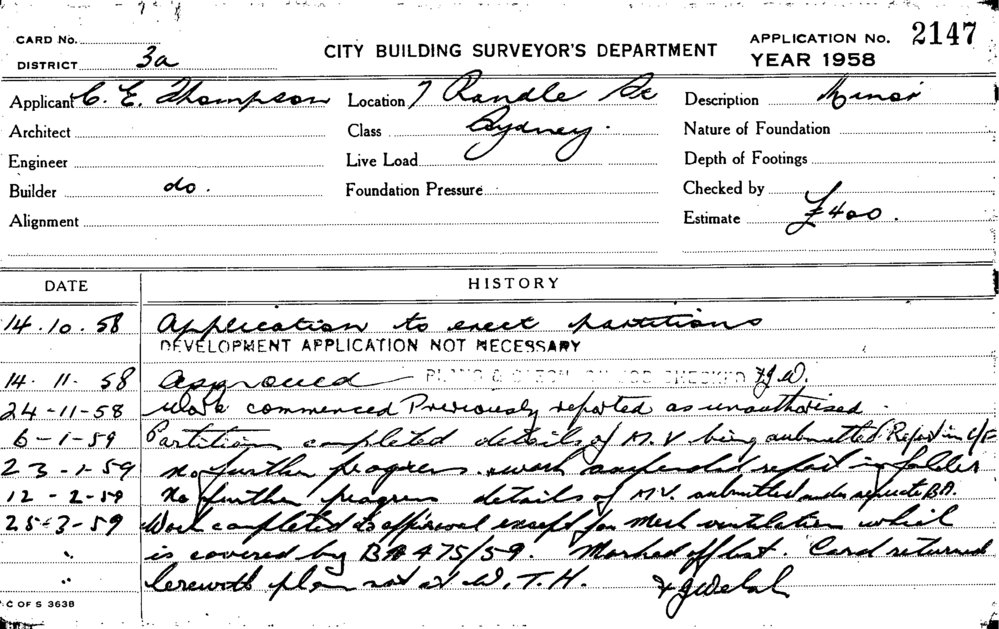 CARD No.
DISTRICT 3a
CITY BUILDING SURVEYOR'S DEPARTMENT
APPLICATION No. 2147
YEAR 1958
Applicant C. E. Thompson
Location 7 Randle St
Description Minor
Architect
Class Sydney.
Nature of Foundation
Engineer
Live Load
Depth of Footings
Builder do.
Foundation Pressure
Checked by
Alignment
Estimate £400.
DATE HISTORY
14.10.58 Application to erect partitions
DEVELOPMENT APPLICATION NOT NECESSARY
14.11.58 Approved — PLANS & ON JOB CHECKED
24-11-58 Work commenced Previously reported as unauthorised.
6-1-59 Partitions completed details of M.V being submitted Report in
23-1-59 No further progress work suspended report in folder
12-2-59 No further progress details of M.V. submitted under separate B.A.
25-3-59 Work completed to approval except for Mech ventilation which
" is covered by BA 475/59. Marked off list. Card returned
" herewith plan not at W.T.H.
C OF S 363B